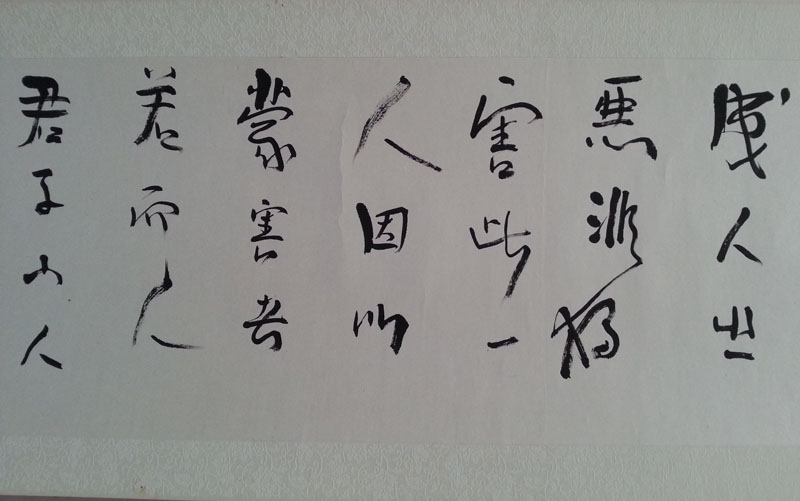 人之
惡非独
害此一
人因以
蒙害者
若而人
君子小人